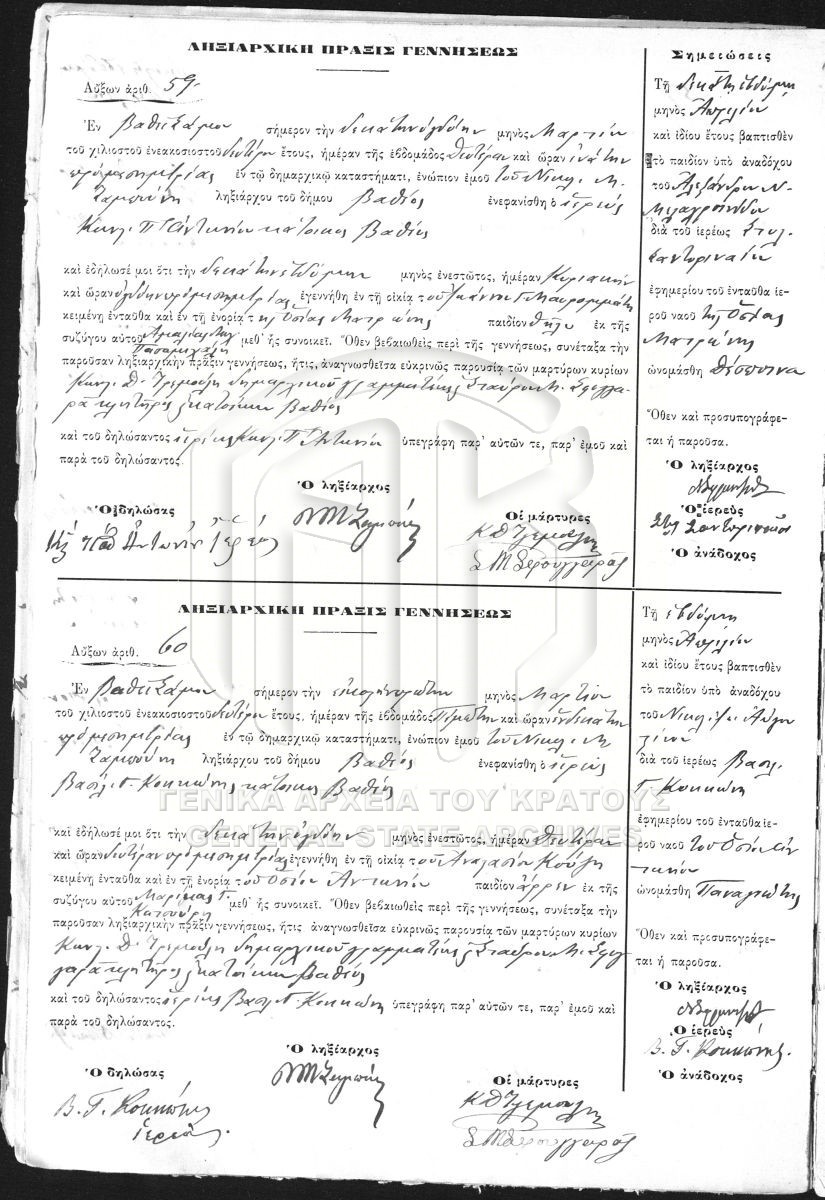 ΛΗΞΙΑΡΧΙΚΗ ΠΡΑΞΙΣ ΓΕΝΝΗΣΕΩΣ
Αὔξων ἀριθ. 59.
Ἐν Βαθεῖ Σάμου σήμερον τὴν δεκάτην ὀγδόην μηνὸς Μαρτίου
τοῦ χιλιοστοῦ ἐνεακοσιοστοῦ δευτέρου ἔτους, ἡμέραν τῆς ἑβδομάδος Δευτέραν καὶ ὥραν ἐνάτην
πρὸ μεσημβρίας ἐν τῷ δημαρχικῷ καταστήματι, ἐνώπιον ἐμοῦ τοῦ Νικολ. Μ.
ληξιάρχου τοῦ δήμου Βαθέος ἐνεφανίσθη ὁ ἱερεὺς
Κων. Π Ἀντωνίου κάτοικος Βαθέος
καὶ ἐδήλωσέ μοι ὅτι τὴν δεκάτην ἑβδόμην μηνὸς ἐνεστῶτος, ἡμέραν Κυριακὴν
καὶ ὥραν ὀγδόην πρὸ μεσημβρίας ἐγεννήθη ἐν τῇ οἰκίᾳ τοῦ Ἰωάννου Γ. Μαυρομμάτη
κειμένῃ ἐνταῦθα καὶ ἐν τῇ ἐνορίᾳ τῆς Ὁσίας Ματρώνης παιδίον θῆλυ ἐκ τῆς
συζύγου αὐτοῦ μεθ᾽ ἧς συνοικεῖ. Ὅθεν βεβαιωθεὶς περὶ τῆς γεννήσεως, συνέταξα τὴν
παροῦσαν ληξιαρχικὴν πρᾶξιν γεννήσεως, ἥτις, ἀναγνωσθεῖσα εὐκρινῶς παρουσίᾳ τῶν μαρτύρων κυρίων
Κων. Δ. Τρεμούλη δημαρχικοῦ γραμματέως & Σταύρου Μ. Σφουγγα-
ρᾶ κλητῆρος & κατοίκων Βαθέος
καὶ τοῦ δηλώσαντος ἱερέως Κων. Π Ἀντωνίου ὑπεγράφη παρ᾽ αὐτῶν τε, παρ᾽ ἐμοῦ καὶ
παρὰ τοῦ δηλώσαντος.
Ὁ δηλώσας
Ἀντωνίου Ἱερεύς
Ὁ ληξίαρχος
Οἱ μάρτυρες
Κ Δ Τρεμούλης
Σ Μ Σφουγγαρᾶς
Σημειώσεις
Τῇ δεκάτῃ ἑβδόμῃ
μηνὸς Ἀπριλίου
καὶ ἰδίου ἔτους βαπτισθὲν
τὸ παιδίον ὑπὸ ἀναδόχου
τοῦ Ἀλεξάνδρου Ν.
διὰ τοῦ ἱερέως Στυλ.
Σαντοριναίου
ἐφημερίου τοῦ ἐνταῦθα ἱε-
ροῦ ναοῦ τῆς Ὁσίας
Ματρώνης
ὠνομάσθη Δέσποινα
Ὅθεν καὶ προσυπογράφε-
ται ἡ παροῦσα.
Ὁ ληξίαρχος
Ὁ ἱερεὺς
Στυλ Σαντοριναῖος
Ὁ ἀνάδοχος
ΛΗΞΙΑΡΧΙΚΗ ΠΡΑΞΙΣ ΓΕΝΝΗΣΕΩΣ
Αὔξων ἀριθ. 60
Ἐν Βαθεῖ Σάμου σήμερον τὴν μηνὸς Μαρτίου
τοῦ χιλιοστοῦ ἐνεακοσιοστοῦ δευτέρου ἔτους, ἡμέραν τῆς ἑβδομάδος Πέμπτην καὶ ὥραν ἑνδεκάτην
πρὸ μεσημβρίας ἐν τῷ δημαρχικῷ καταστήματι, ἐνώπιον ἐμοῦ τοῦ Νικολ. Μ
ληξιάρχου τοῦ δήμου Βαθέος ἐνεφανίσθη ὁ ἱερεὺς
Βασίλ. Γ. Κοκκώνης κάτοικος Βαθέος
καὶ ἐδήλωσέ μοι ὅτι τὴν δεκάτην ὀγδόην μηνὸς ἐνεστῶτος, ἡμέραν Δευτέραν
καὶ ὥραν δευτέραν πρὸ μεσημβρίας ἐγεννήθη ἐν τῇ οἰκίᾳ τοῦ Ἀναστασίου
κειμένῃ ἐνταῦθα καὶ ἐν τῇ ἐνορίᾳ τοῦ Ὁσίου Ἀντωνίου παιδίον ἄρρεν ἐκ τῆς
συζύγου αὐτοῦ Μαρίας Γ. μεθ᾽ ἧς συνοικεῖ. Ὅθεν βεβαιωθεὶς περὶ τῆς γεννήσεως, συνέταξα τὴν
παροῦσαν ληξιαρχικὴν πρᾶξιν γεννήσεως, ἥτις ἀναγνωσθεῖσα εὐκρινῶς παρουσίᾳ τῶν μαρτύρων κυρίων
Κων. Δ. Τρεμούλη δημαρχικοῦ γραμματέως & Σταύρου Μ. Σφουγ-
γαρᾶ κλητῆρος & κατοίκων Βαθέος
καὶ τοῦ δηλώσαντος ἱερέως Βασίλ. Γ. Κοκκώνη ὑπεγράφη παρ᾽ αὐτῶν τε, παρ᾽ ἐμοῦ καὶ
παρὰ τοῦ δηλώσαντος.
Ὁ δηλώσας
Β. Γ. Κοκκώνης
Ἱερεύς.
Ὁ ληξίαρχος
Οἱ μάρτυρες
Κ Δ Τρεμούλης
Σ Μ Σφουγγαρᾶς
Τῇ ἑβδόμῃ
μηνὸς Ἀπριλίου
καὶ ἰδίου ἔτους βαπτισθὲν
τὸ παιδίον ὑπὸ ἀναδόχου
τοῦ Νικολ.
διὰ τοῦ ἱερέως Βασιλ.
Γ. Κοκκώνη
ἐφημερίου τοῦ ἐνταῦθα ἱε-
ροῦ ναοῦ τοῦ Ὁσίου Ἀν-
τωνίου
ὠνομάσθη Παναγιώτης
Ὅθεν καὶ προσυπογράφε-
ται ἡ παροῦσα.
Ὁ ληξίαρχος
Ὁ ἱερεὺς
Β. Γ. Κοκκώνης.
Ὁ ἀνάδοχος
ΓΕΝΙΚΑ ΑΡΧΕΙΑ ΤΟΥ ΚΡΑΤΟΥΣ
GENERAL STATE ARCHIVES